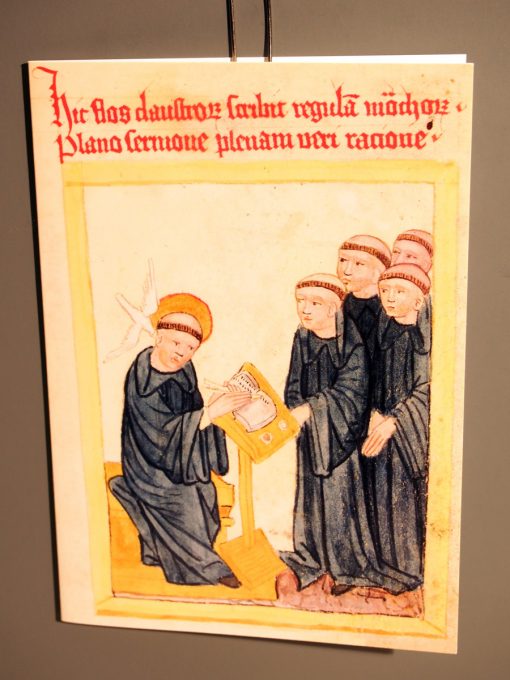 Hic flos claustroꝝ scribit regulā mōchoꝝ ·
Plano sermone plenam veri racione ·